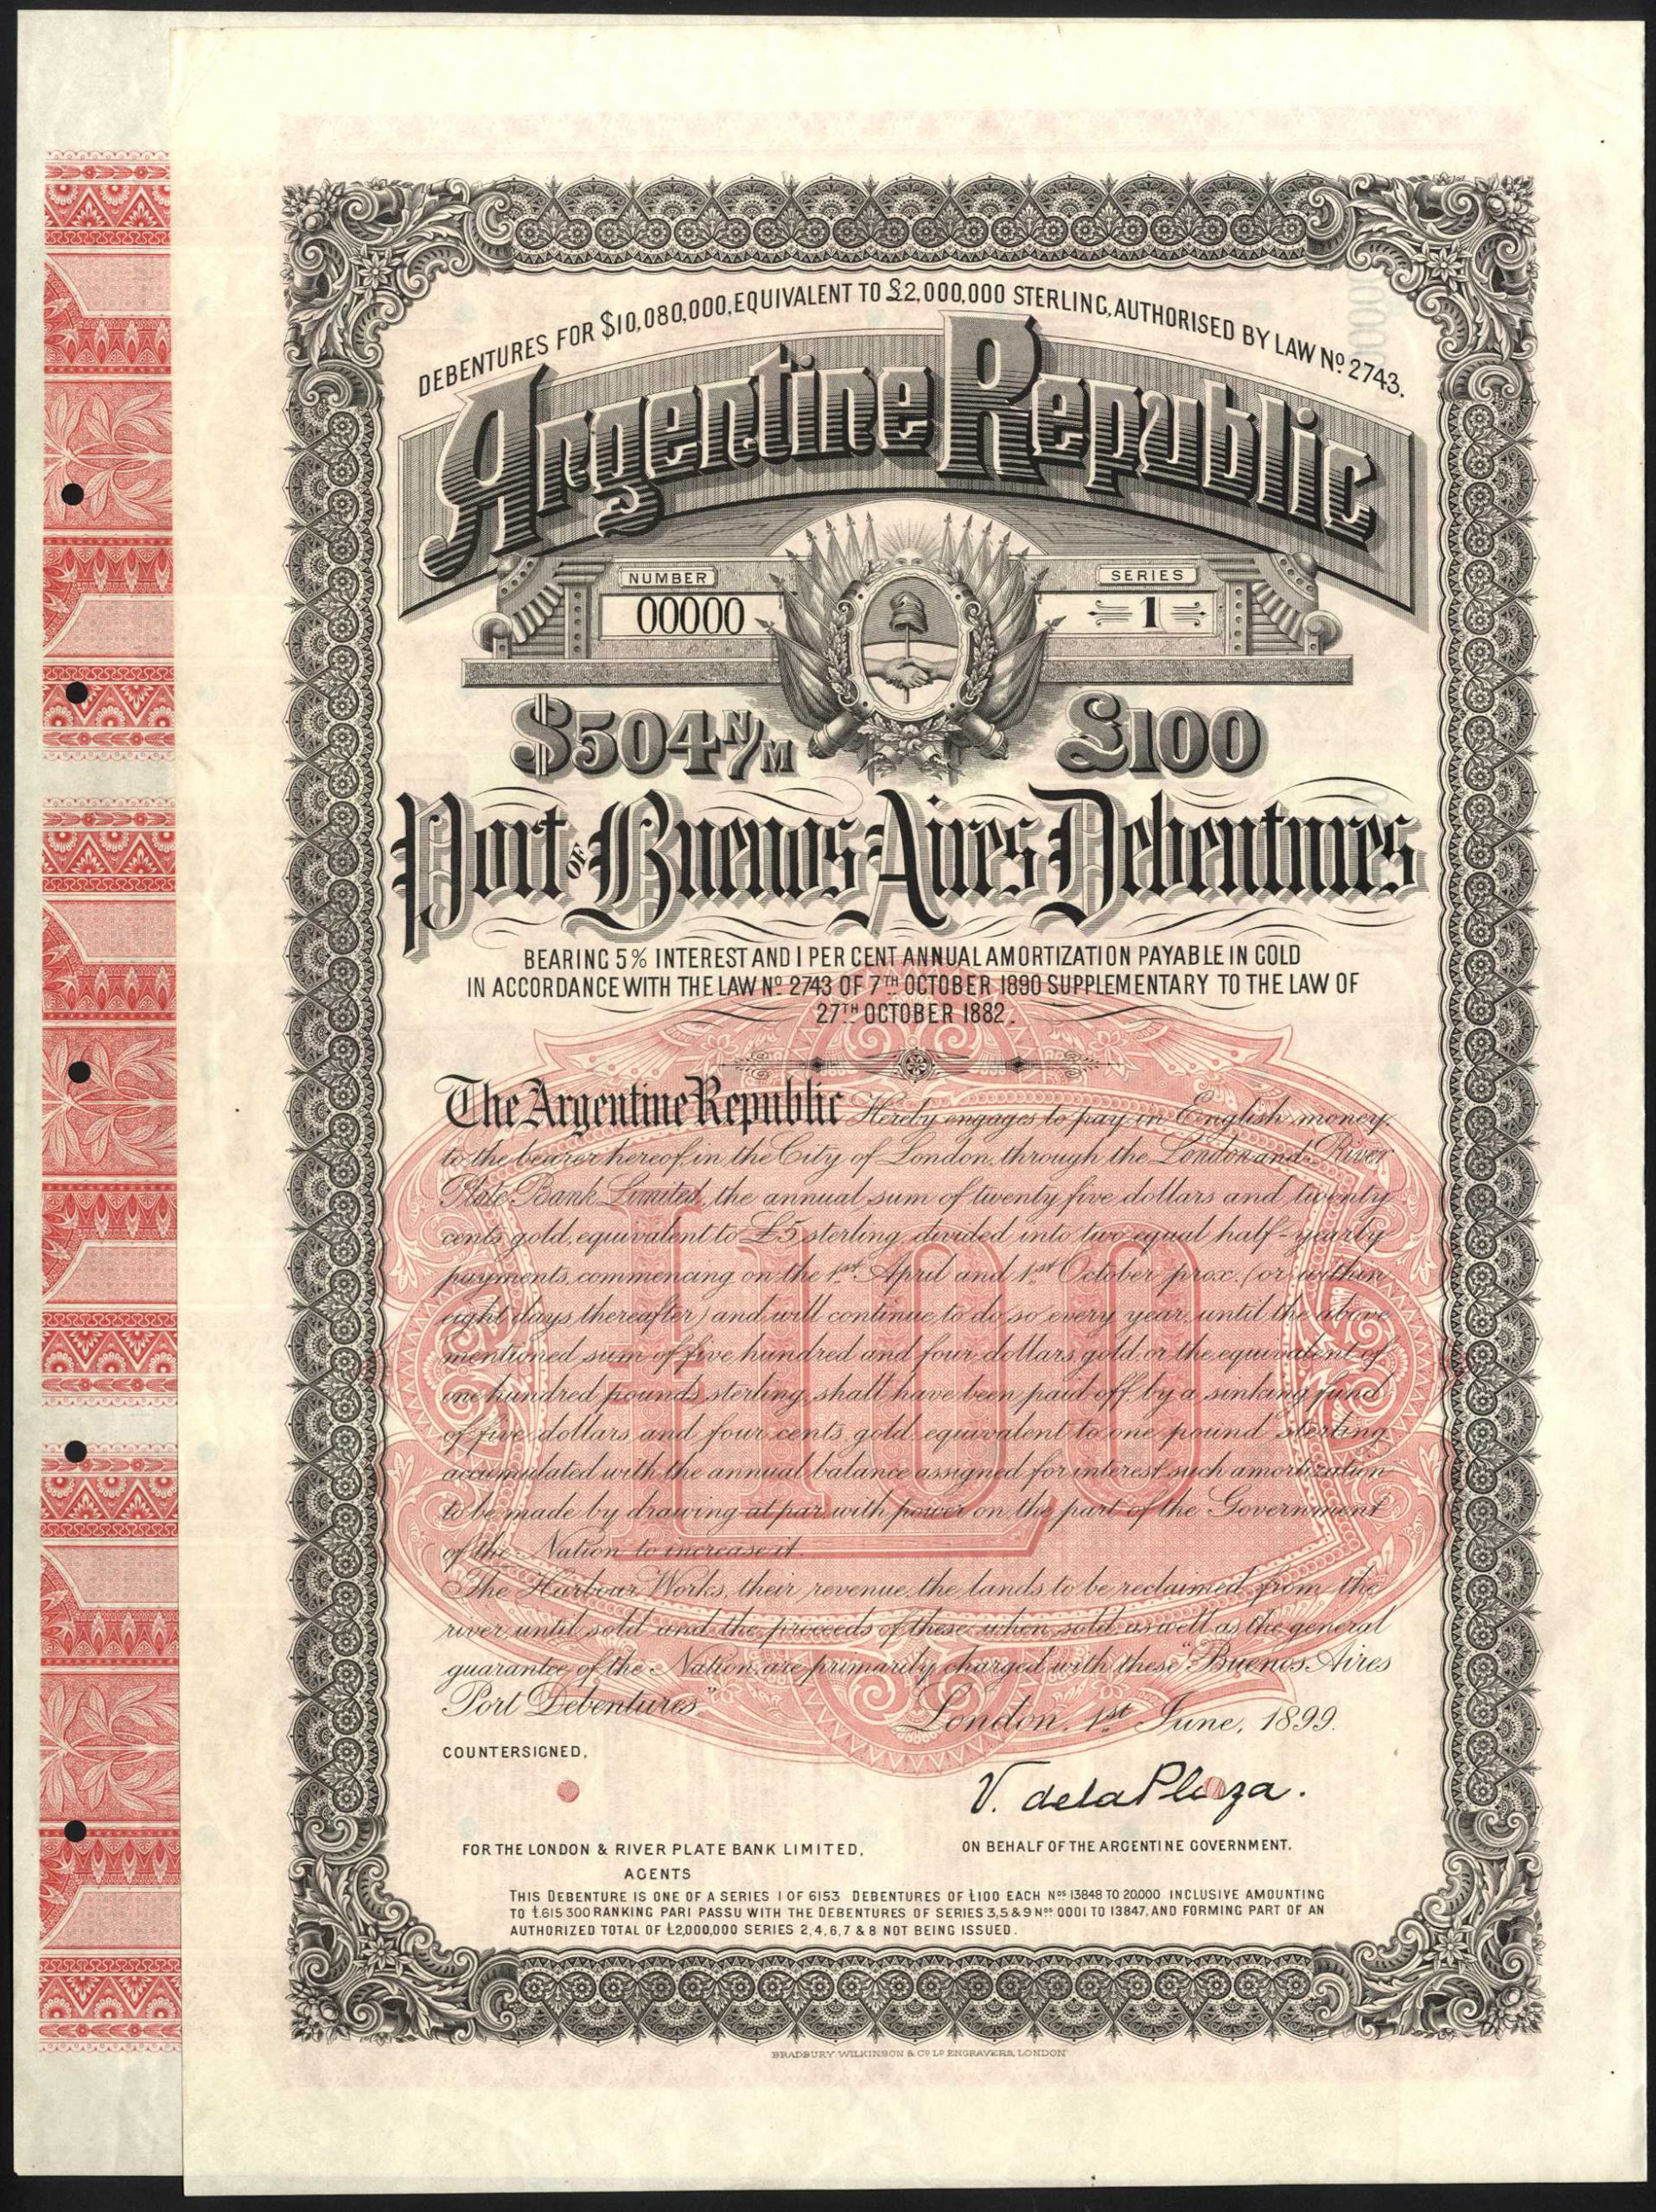 DEBENTURES FOR $10,080,000, EQUIVALENT TO £2,000,000 STERLING, AUTHORISED BY LAW Nº 2743.
Argentine Republic
NUMBER
00000
SERIES
1
$504 N/M
£100
Port OF Buenos Aires Debentures
BEARING 5% INTEREST AND 1 PER CENT ANNUAL AMORTIZATION PAYABLE IN GOLD
IN ACCORDANCE WITH THE LAW Nº 2743 OF 7TH OCTOBER 1890 SUPPLEMENTARY TO THE LAW OF
27TH OCTOBER 1882.
The Argentine Republic Hereby engages to pay in English money,
to the bearer hereof, in the City of London, through the London and River
Plate Bank Limited, the annual sum of twenty five dollars and twenty
cents gold, equivalent to £5 sterling, divided into two equal half-yearly
payments, commencing on the 1st April and 1st October prox. (or within
eight days thereafter) and will continue to do so every year, until the above
mentioned sum of five hundred and four dollars gold, or the equivalent of
one hundred pounds sterling, shall have been paid off, by a sinking fund
of five dollars and four cents gold, equivalent to one pound sterling
accumulated with the annual balance assigned for interest, such amortization
to be made by drawing at par, with power on the part of the Government
of the Nation to increase it.
The Harbour Works, their revenue, the lands to be reclaimed from the
river, until sold and the proceeds of these when sold, as well as the general
guarantee of the Nation, are primarily charged with these "Buenos Aires
Port Debentures"
London, 1st June, 1899.
COUNTERSIGNED,
V. de la Plaza.
FOR THE LONDON & RIVER PLATE BANK LIMITED,
AGENTS
ON BEHALF OF THE ARGENTINE GOVERNMENT.
THIS DEBENTURE IS ONE OF A SERIES 1 OF 6153 DEBENTURES OF £100 EACH Nos 13848 TO 20000 INCLUSIVE AMOUNTING
TO £.615 300 RANKING PARI PASSU WITH THE DEBENTURES OF SERIES 3, 5 & 9 Nos 0001 TO 13847, AND FORMING PART OF AN
AUTHORIZED TOTAL OF £2,000,000 SERIES 2, 4, 6, 7 & 8 NOT BEING ISSUED.
BRADBURY, WILKINSON & Co Ld ENGRAVERS, LONDON
£100